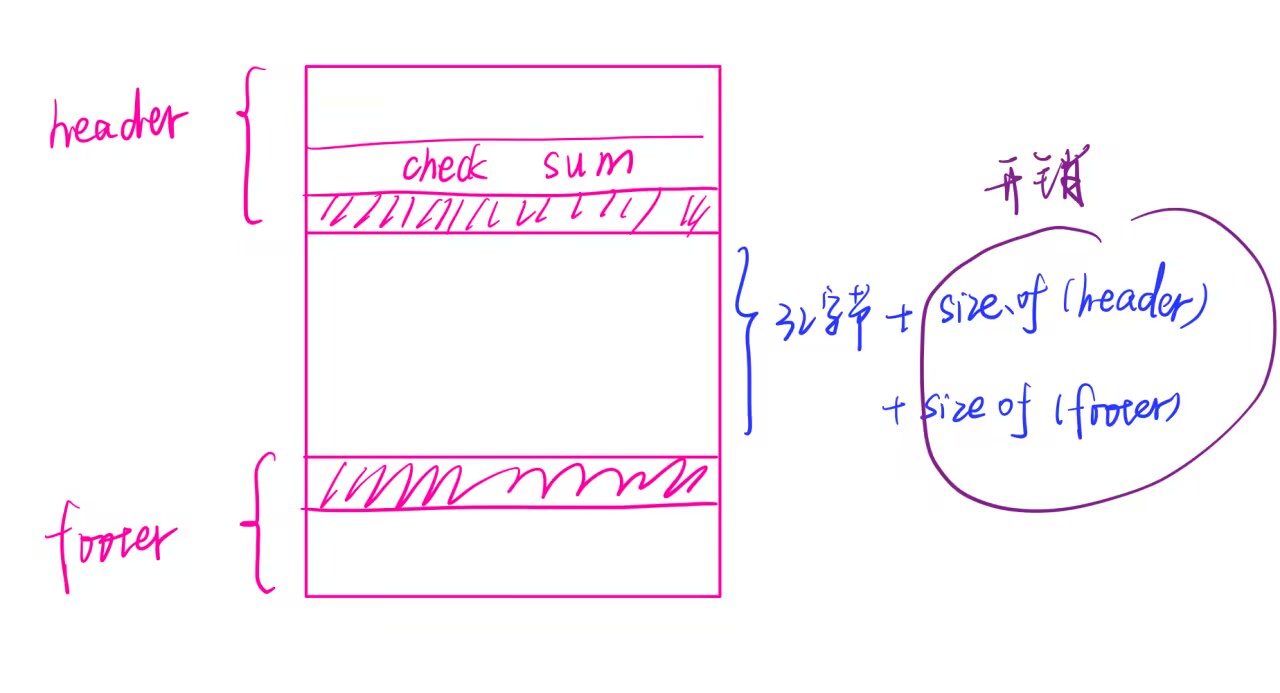 header
check sum
开销
32字节 + size of (header)
+ size of (footer)
footer